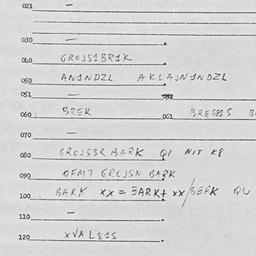 021 —
030 —
040 GROJS1BR1K
050 AN1NDZL AKLAJN1NDZL
051 —
060 BREK 061 BREG81S
070 —
080 GROJS3R BARK Q1 NIT K8
090 OFMT GROJSN BARK
100 BARK XX = BARK+ XX/BERK QU
110 —
120 XVAL81S